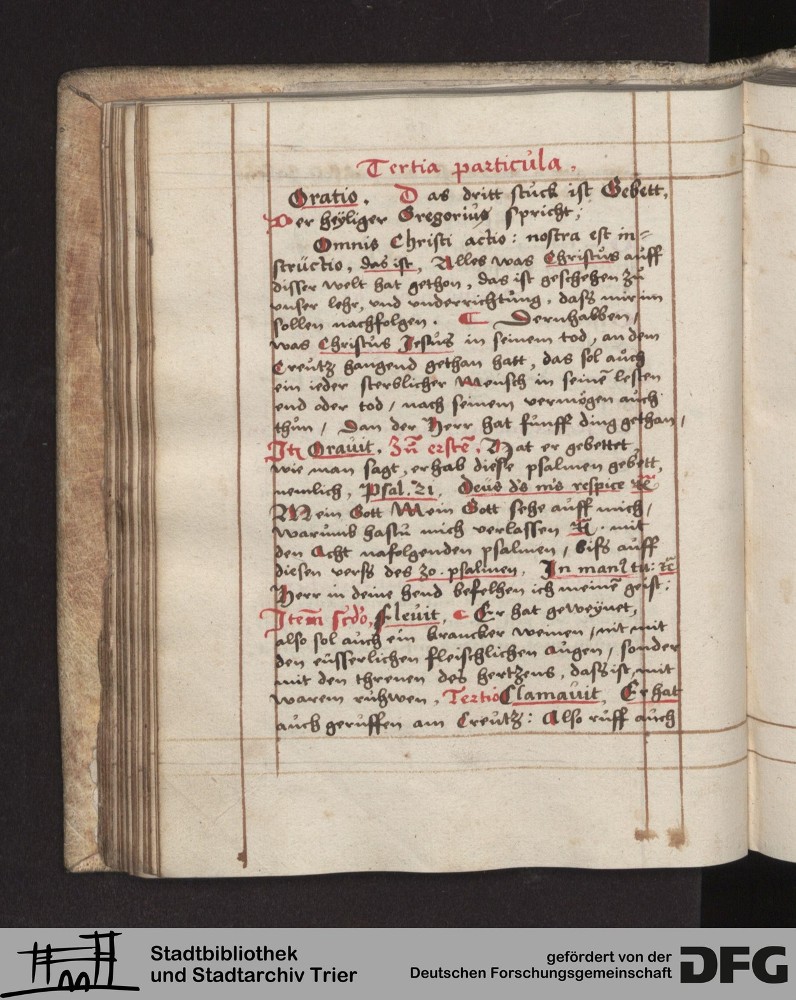 Tertia particula.
Oratio. Das dritt stuck ist Gebett.
Der heyliger Gregorius spricht;
Omnis Christi actio: nostra est in=
structio, das ist, Alles was Christus auff
disser welt hat gethon, das ist geschehen zu
unser lehr, und underrichtung, dass mir im
sollen nachfolgen. Dernhalben/
was Christus Jesus in seinem tod, an dem
Creutz hangend gethan hatt, das sol auch
ein ieder sterblicher Mensch in seinē lesten
end oder tod / nach seinem vermögen auch
thun / Dan der Herr hat funff ding gethan /
Orauit. Zū erstē. Hat er gebettet
wie man sagt, erhab diese psalmen gebett,
nemlich, Psal. 21. Deus ds ms respice
Mein Gott Mein Gott sehe auff mich /
warumb hastu mich verlassen mit
den Acht nafolgenden psalmen / biss auff
diesen verss des 30. psalmen. In man9 tu:
Herr in deine hend befelhen ich meinē geist:
Item scdo, Fleuit. Er hat geweynet,
also sol auch ein krancker weinen / nit mit
den eusserlichen fleischlichen augen, sonder
mit den threnen des hertzens, dass ist, mit
warem ruhwen. Tertio Clamauit. Er hat
auch geruffen am Creutz: Also ruff auch
Stadtbibliothek
und Stadtarchiv Trier
gefördert von der
Deutschen Forschungsgemeinschaft
DFG